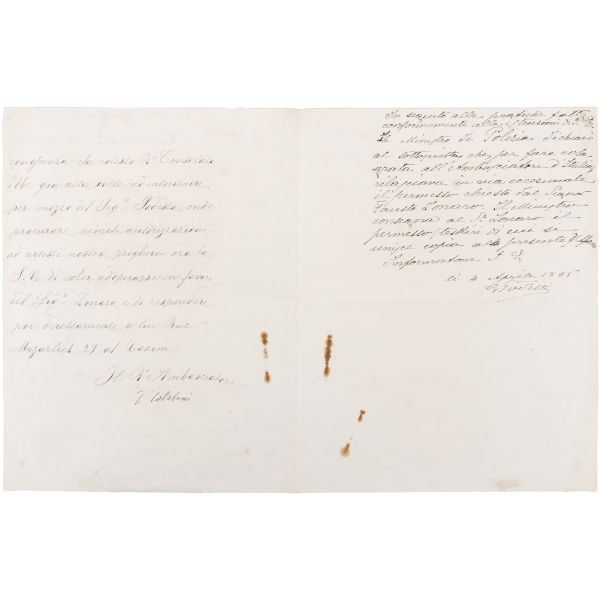 congiunza che codesto R° Consolato
ebbe già altre volte ad intervenire
per mezzo del Sig.r Foesta, onde
procurare simili autorizzazioni
ad artisti nostri, pregherei ora la
S. V. di voler adoperarsi in favore
del Sig.r Zonaro e di rispondere
poi direttamente a lui, Rue
Mezarlick, 29 al Taxim
Il R° Ambasciatore
T. Catalani
In seguito alle pratiche fatte
conformemente alle istruzioni di
Il Ministro di Polizia dichiarò
al sottoscritto che per fare cosa
grata all'Ambasciatore d'Italia
rilasciava in via eccezionale
il permesso chiesto dal Signor
Fausto Zonaro. Il Ministro
consegnò al Sr. Zonaro il
permesso, teskere di cui si
unisce copia alla presente
Informatore
li 4 Aprile 1895